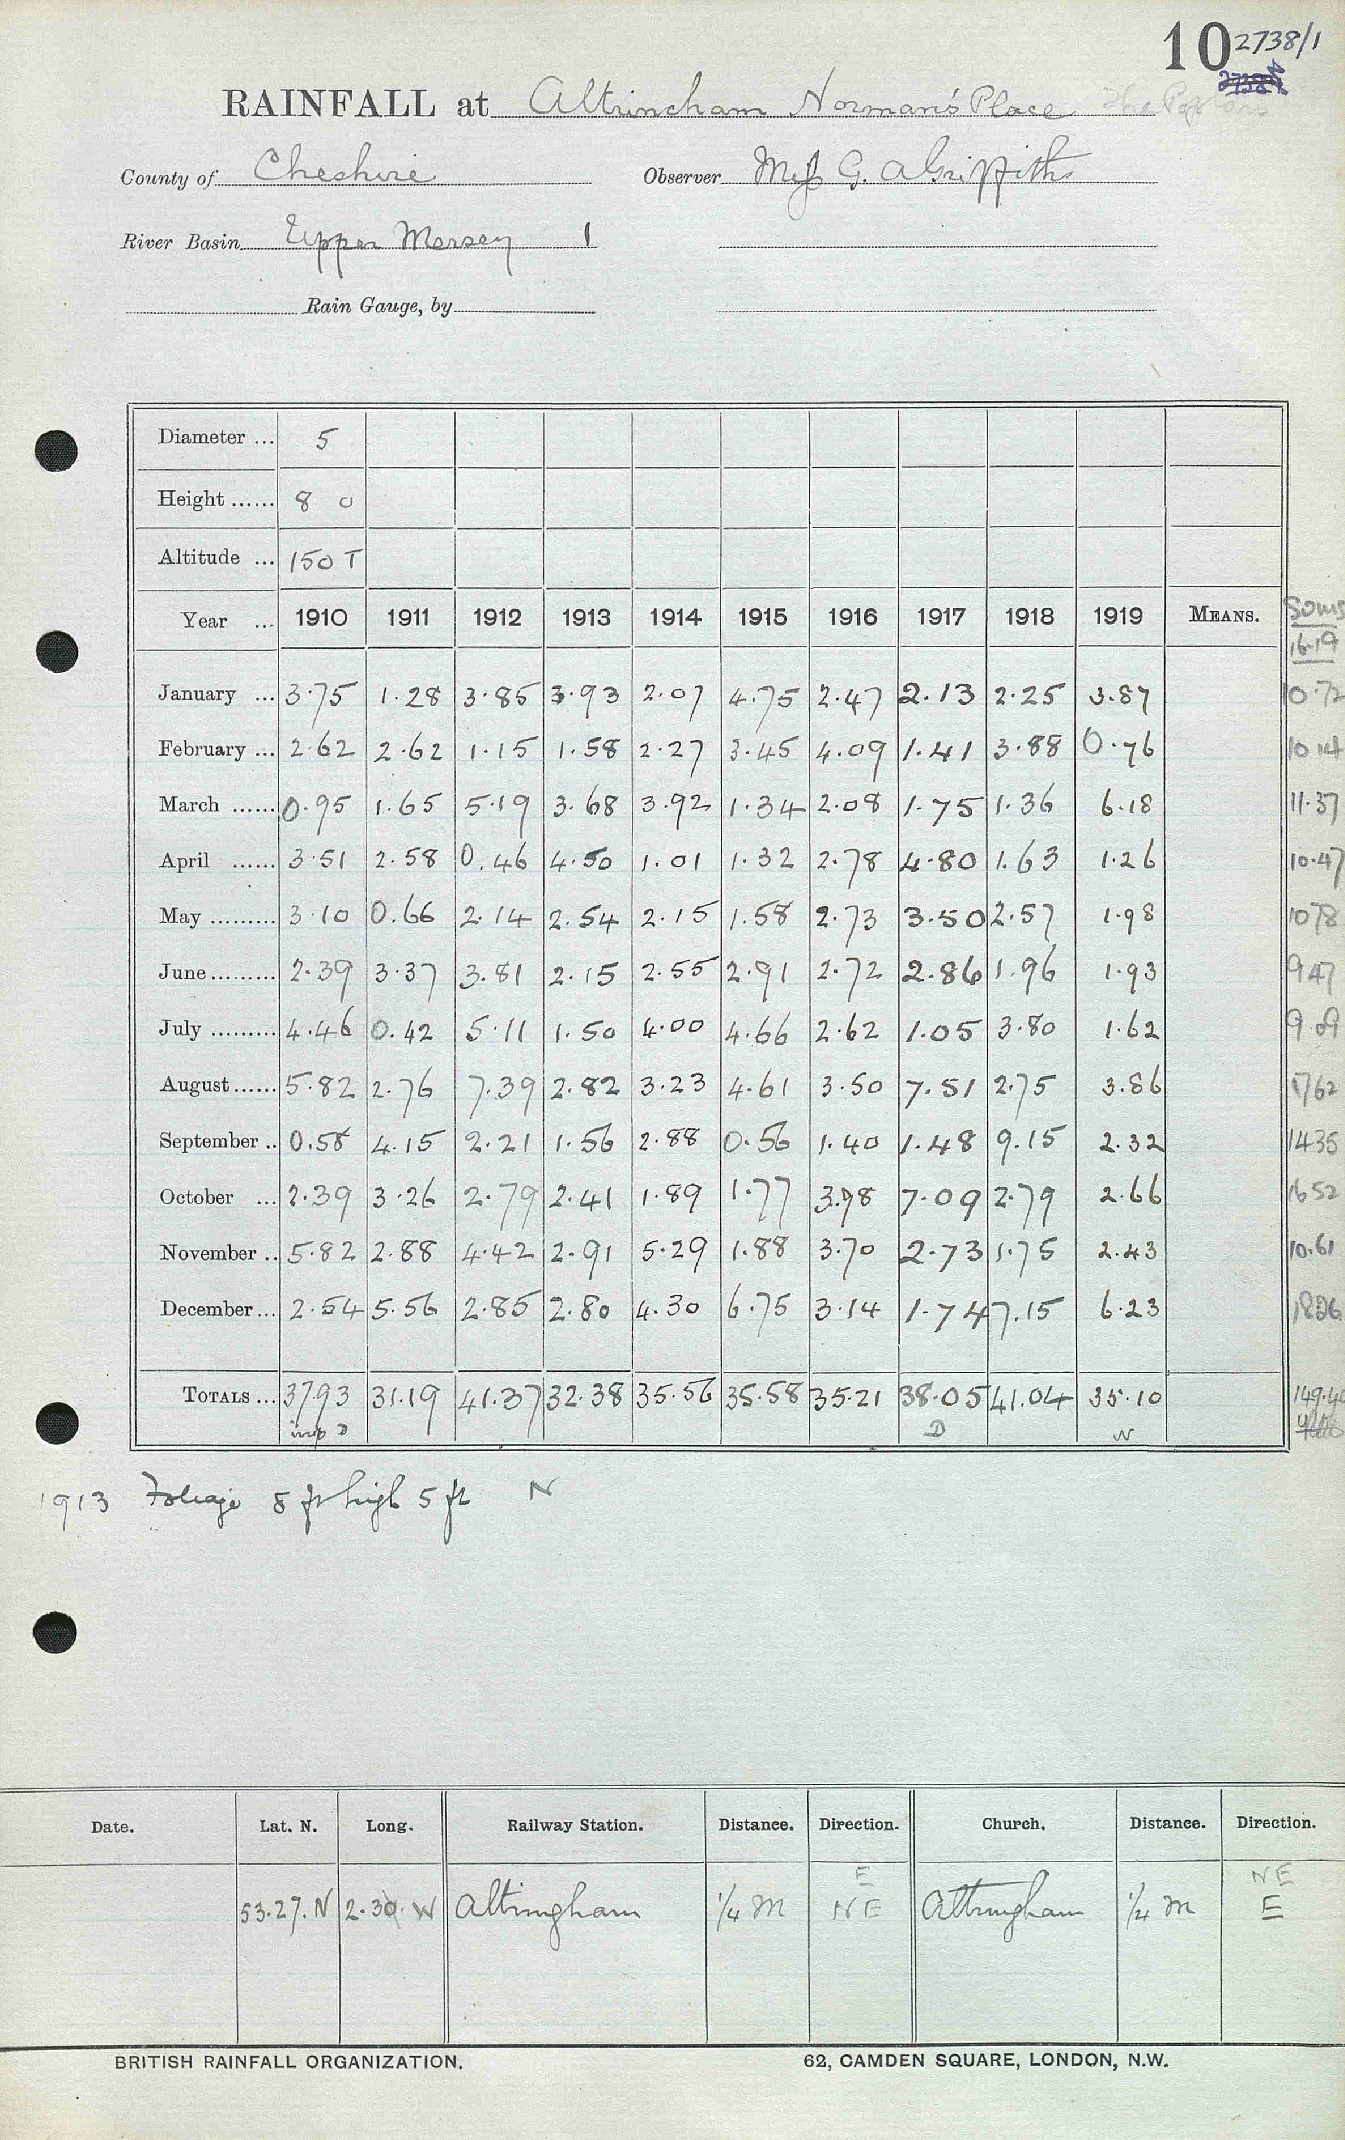 10 2738/1
RAINFALL at Altrincham Norman's Place The Poplars
County of Cheshire Observer Miss G. A Griffiths
River Basin Upper Mersey 1
Rain Gauge, by
Diameter ... 5
Height ...... 8 0
Altitude ... 150 T
Year ... 1910 1911 1912 1913 1914 1915 1916 1917 1918 1919 MEANS. Sums
16-19
January ... 3.75 1.28 3.85 3.93 2.07 4.75 2.47 2.13 2.25 3.87 10.72
February ... 2.62 2.62 1.15 1.58 2.27 3.45 4.09 1.41 3.88 0.76 10 14
March ...... 0.95 1.65 5.19 3.68 3.92 1.34 2.08 1.75 1.36 6.18 11.37
April ...... 3.51 2.58 0.46 4.50 1.01 1.32 2.78 4.80 1.63 1.26 10.47
May ......... 3.10 0.66 2.14 2.54 2.15 1.58 2.73 3.50 2.57 1.98 1078
June ......... 2.39 3.37 3.81 2.15 2.55 2.91 2.72 2.86 1.96 1.93 9 47
July ......... 4.46 0.42 5.11 1.50 4.00 4.66 2.62 1.05 3.80 1.62 9.09
August ...... 5.82 2.76 7.39 2.82 3.23 4.61 3.50 7.51 2.75 3.86 1762
September .. 0.58 4.15 2.21 1.56 2.88 0.56 1.40 1.48 9.15 2.32 1435
October ... 2.39 3.26 2.79 2.41 1.89 1.77 3.98 7.09 2.79 2.66 1652
November .. 5.82 2.88 4.42 2.91 5.29 1.88 3.70 2.73 1.75 2.43 10.61
December ... 2.54 5.56 2.85 2.80 4.30 6.75 3.14 1.74 7.15 6.23 1826
TOTALS ... 37.93 31.19 41.37 32.38 35.56 35.58 35.21 38.05 41.04 35.10 149.40
D D N
1913 Foliage 8 ft high 5 ft N
Date. Lat. N. Long. Railway Station. Distance. Direction. Church. Distance. Direction.
E NE
53.27.N 2.30. W Altringham 1/4 M NE Altringham 1/4 m E
BRITISH RAINFALL ORGANIZATION. 62, CAMDEN SQUARE, LONDON, N.W.